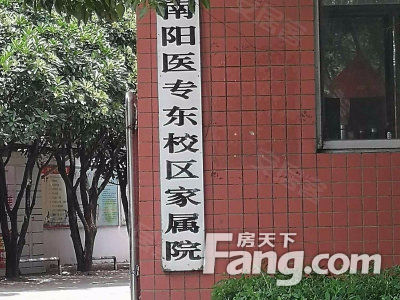 南阳医专东校区家属院
房天下
Fang.com